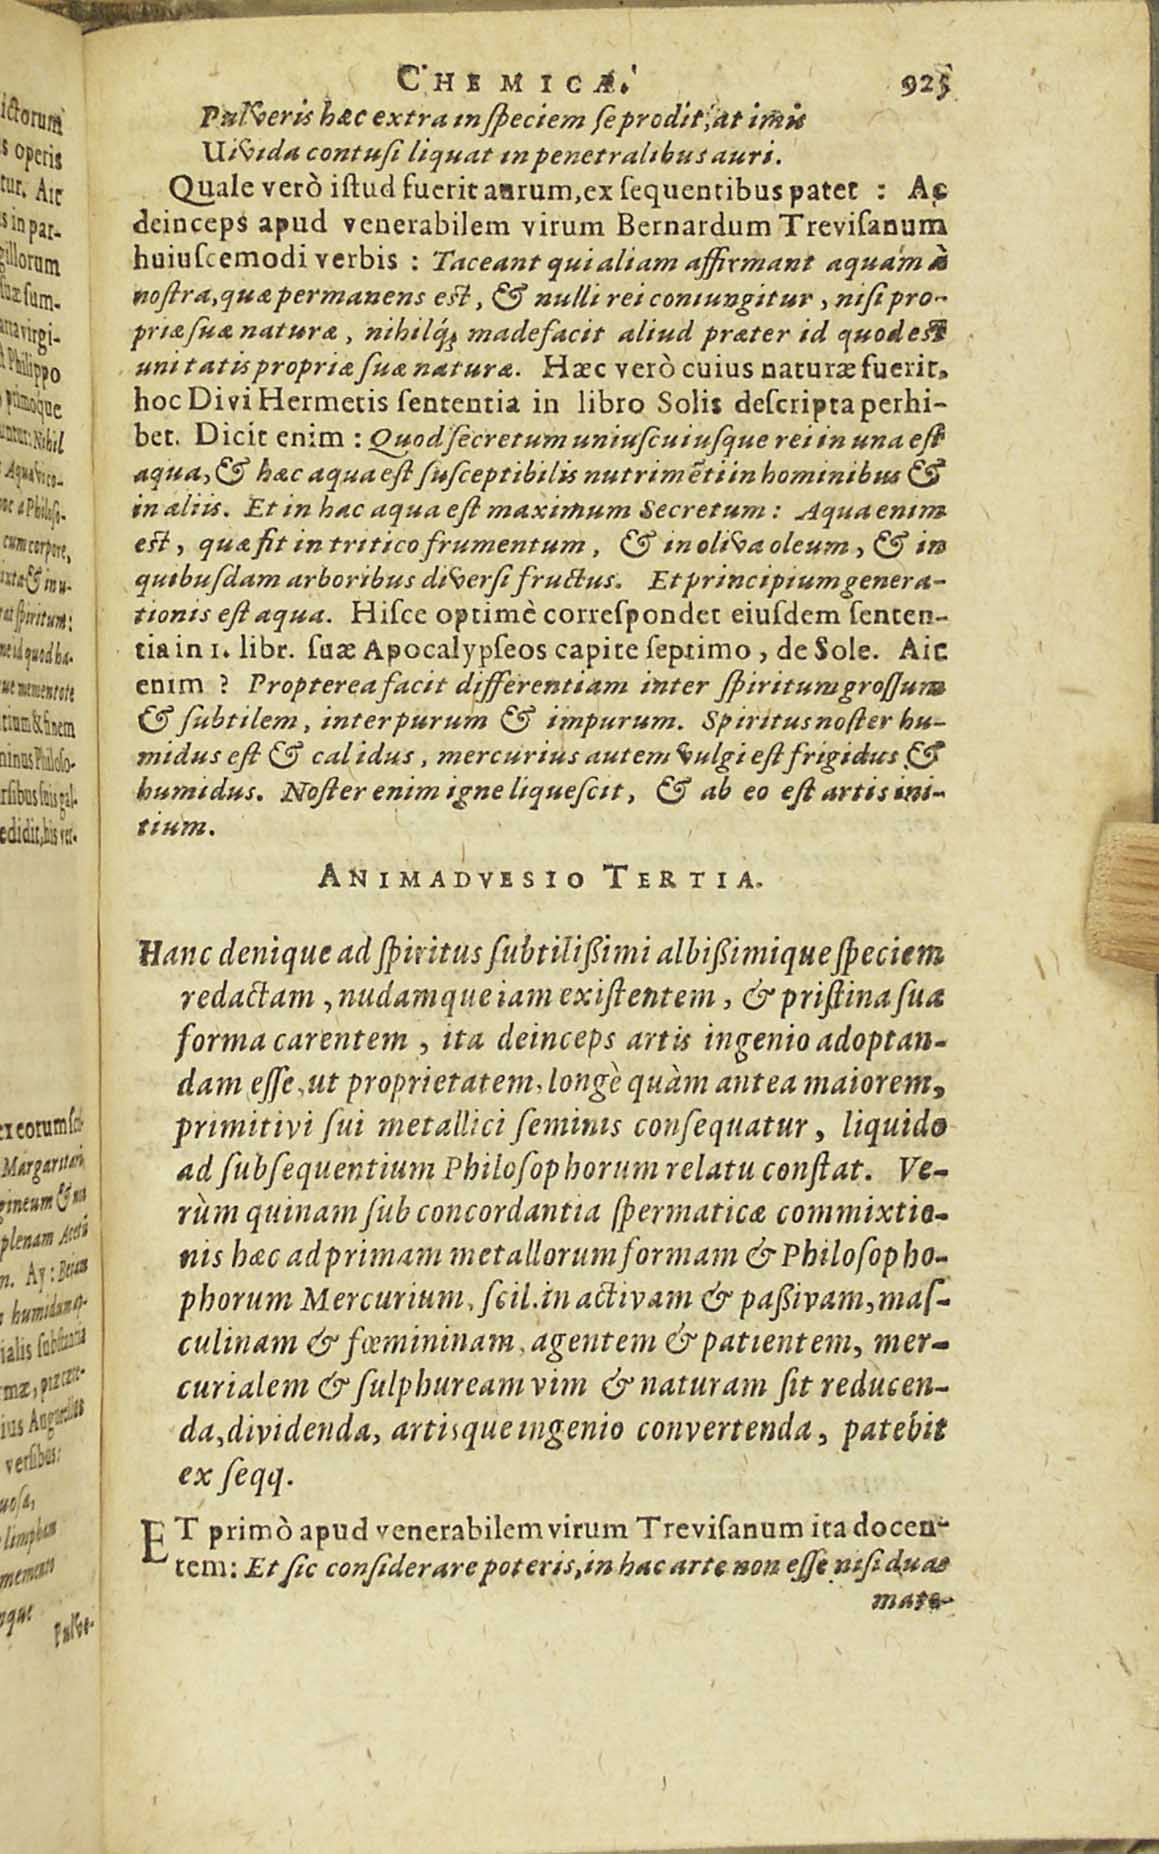 ictorum
s operis
tur. Ait
s in par-
gillorum
suæ sum-
virgi-
Philippo
primoque
untur: Nihil
Aqua
a Philoso-
cum corpore,
& in u-
spiritum:
id quod ha-
que mementote
tium & finem
minus Philoso-
rsibus suis gal-
edidit, his ver-
ex eorum
Margaritari
gineum &
plenam
n. Ay:
humidam
ialis substantia
mæ,
ius Augurellus
versibus:
uosa,
limpham
memento
sque
Pulve-
CHEMICA. 925
Pulveris hæc extra in ſpeciem ſe prodit, at imis
Uivida contuſi liquat in penetralibus auri.
Quale verò iſtud fuerit aurum, ex ſequentibus patet : Ac
deinceps apud venerabilem virum Bernardum Treviſanum
huiuſcemodi verbis : Taceant qui aliam affirmant aquam à
noſtra, quæ permanens eſt, & nulli rei coniungitur, niſi pro-
priæ ſuæ naturæ, nihilq́; madefacit aliud præter id quod eſt
unitatis propriæ ſuæ naturæ. Hæc verò cuius naturæ fuerit,
hoc Divi Hermetis ſententia in libro Solis deſcripta perhi-
bet. Dicit enim : Quod ſecretum uniuſcuiuſque rei in una eſt
aqua, & hæc aqua eſt ſuſceptibilis nutrimẽti in hominibus &
in aliis. Et in hac aqua eſt maximum Secretum : Aqua enim
eſt, quæ fit in tritico frumentum, & in oliva oleum, & in
quibuſdam arboribus diverſi fructus. Et principium genera-
tionis eſt aqua. Hiſce optimè correſpondet eiuſdem ſenten-
tia in 1. libr. ſuæ Apocalypſeos capite ſeptimo, de Sole. Ait
enim ? Propterea facit differentiam inter ſpiritum groſſum
& ſubtilem, inter purum & impurum. Spiritus noſter hu-
midus eſt & calidus, mercurius autem vulgi eſt frigidus &
humidus. Noſter enim igne liqueſcit, & ab eo eſt artis ini-
tium.
ANIMADVESIO TERTIA.
Hanc denique ad ſpiritus ſubtilißimi albißimique ſpeciem
redactam, nudamque iam exiſtentem, & priſtina ſua
forma carentem, ita deinceps artis ingenio adoptan-
dam eſſe, ut proprietatem, longè quàm antea maiorem,
primitivi ſui metallici ſeminis conſequatur, liquido
ad ſubſequentium Philoſophorum relatu conſtat. Ve-
rùm quinam ſub concordantia ſpermaticæ commixtio-
nis hæc ad primam metallorum formam & Philoſopho-
phorum Mercurium, ſcil. in activam & paßivam, maſ-
culinam & fœmininam, agentem & patientem, mer-
curialem & ſulphuream vim & naturam ſit reducen-
da, dividenda, artisque ingenio convertenda, patebit
ex ſeqq.
ET primò apud venerabilem virum Treviſanum ita docen-
tem: Et ſic conſiderare poteris, in hac arte non eſſe niſi duas
mate-